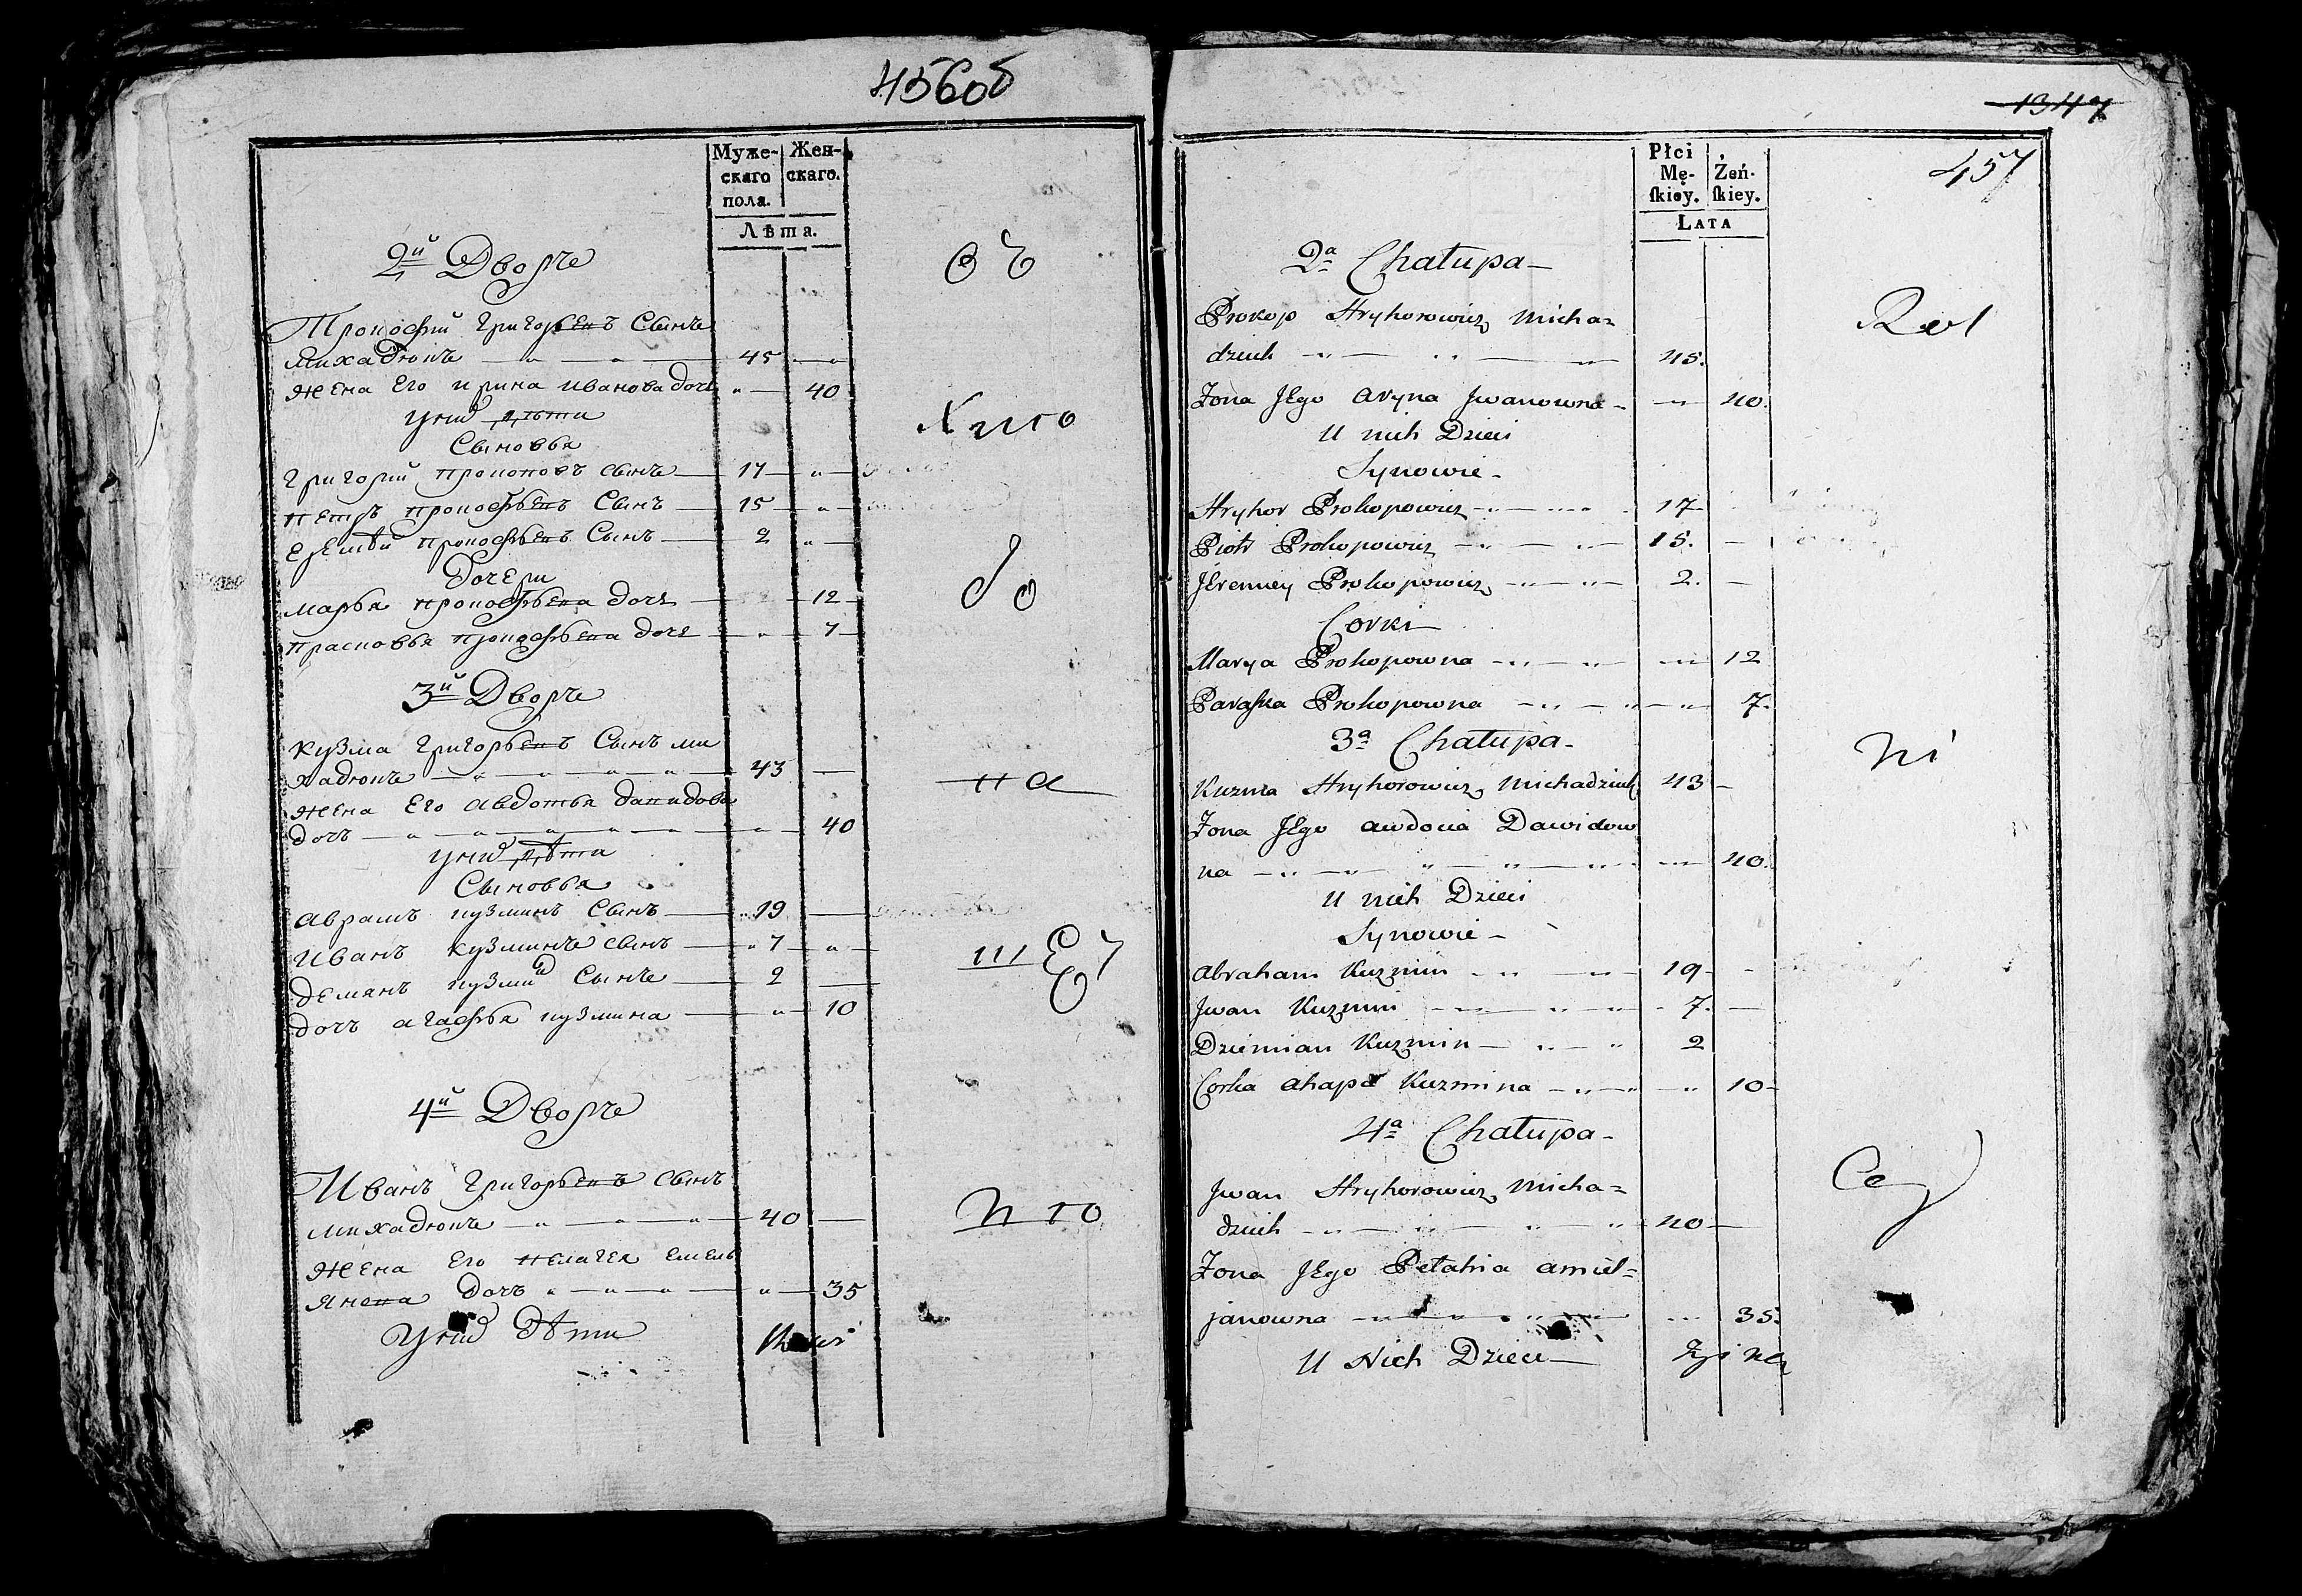 456об
Муже-
скаго
пола.
Жен-
скаго.
Лѣта.
2й Дворъ
Прокофий Григорьевъ Сынъ
Михадюкъ 45
жена Его ирина иванова дочь 40
у них дѣти
Сыновья
григорий прокоповъ сынъ 17
петръ прокофьевъ Сынъ 15
еремѣй прокофьевъ Сынъ 2
дочери
марья прокофьева дочь 12
прасковья прокофьева дочь 7
3й Дворъ
кузма григорьевъ Сынъ ми
хадюкъ 43
жена Его авдотья давидова
дочь 40
у них дѣти
Сыновья
аврамъ кузминъ Сынъ 19
иванъ кузминъ сынъ 7
демянъ кузмин Сынъ 2
дочь агафья кузмина 10
4й Дворъ
Иванъ григорьевъ сынъ
михадюкъ 40
жена Его пелагея емель
янова дочь 35
У них дѣти
на
1347
457
Płci
Mę-
skiey.
Żeń-
skiey.
LATA
2a Chałupa
Prokop Hryhorowicz Micha=
dziuk 45.
Żona Jego Aryna Jwanowna 40.
U nich Dzieci
Synowie
Hryhor Prokopowicz 17
Piotr Prokopowicz 15.
Jeremiey Prokopowicz 2.
Corki
Marya Prokopowna 12
Paraska Prokopowna 7.
3a Chałupa
Kuzma Hryhorowicz Michadziuk 43
Żona Jego Awdocia Dawidow
na 40.
U nich Dzieci
Synowie
Abraham Kuzmin 19
Jwan Kuzmin 7.
Dziemian Kuzmin 2
Corka Ahapa Kuzmina 10
4a Chałupa
Jwan Hryhorowicz Micha=
dziuk 40
Żona Jego Pełahia Amiel=
janowna 35.
U Nich Dzieci
Rol
ni